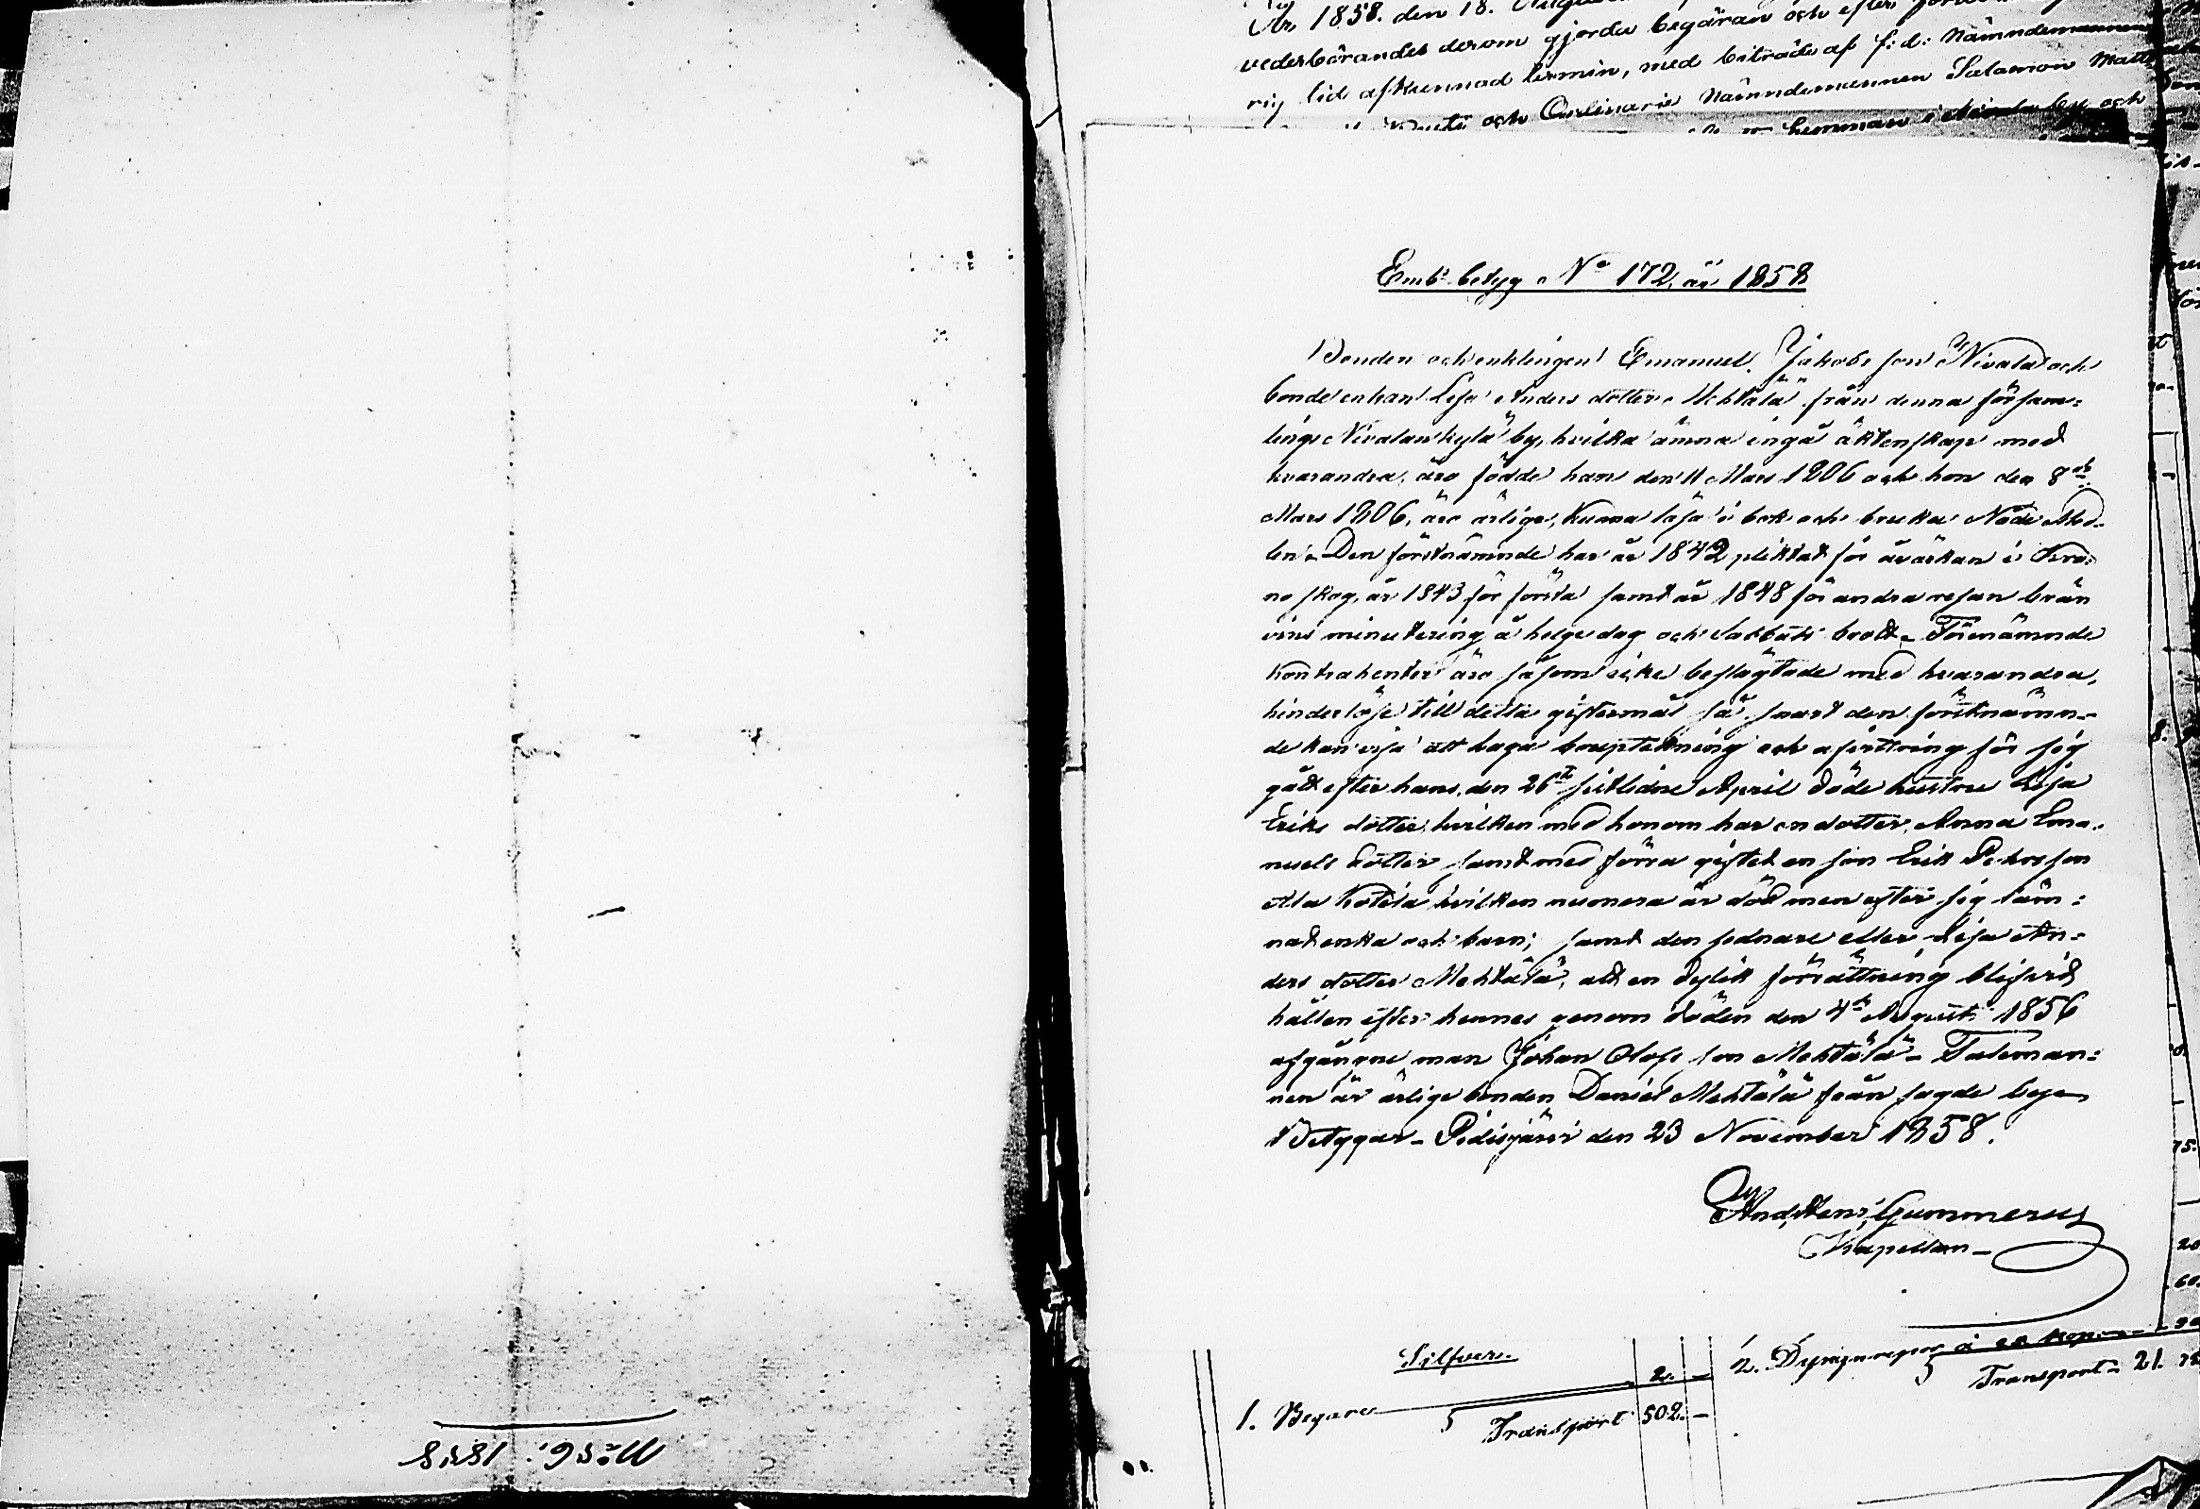 År 1858. den 18.
vederbörandes derom gjorda begäran och efter
rig tid afkunnad termin, med biträde af f: d: Nämndemannen
och Ordinarie Nämndemannen Salomon Matts
hemman i by och
Emb:s betyg No 172, år 1858
Bonden och enklingen Emanuel Jakobs son Nivala och
bonde enkan Lisa Anders dotter Mehtälä från denna försam:
lings Nivalankylä by, hvilka ämna ingå äktenskap med
hvarandra, äro födde han den 11 Mars 1806 och hon den 8de
Mars 1806, äro ärlige, kunna läsa i bok och bruka Nåde Med-
len. Den förstnämnde har år 1842 pliktat för åvärkan i Kro-
no skog, år 1843 för första samt år 1848 för andra resan brän
vins minutering å helgedag och Sabbats brott. Förenämnde
kontrahenter äro såsom icke beslägtade med hvarandra,
hinderlöse till detta giftermål så snart den förstnämn-
de kan visa att laga bouptekning och afvittring för sig
gått efter hans, den 26te sistlidne April döde hustru Lisa
Eriks dotter, hvilken med honom har en dotter, Anna Ema-
nuels dotter samt med förra giftet en son Erik Petersson
Ala Kotila hvilken numera är död men efter sig läm:
nat enka och barn; samt den sednare eller Lisa An-
ders dotter Mehtälä, att en dylik förrättning blifvit
hållen efter hennes genom döden den 4de Augusti 1856
afgångne man Johan Olofs son Mehtälä. Taleman:
nen är ärlige bonden Daniel Mehtälä från sagde by
Betygar. Pidisjärvi den 23 November 1858.
And. Hens. Gummerus
Kapellan
Silfver.
1. Bägare 2. -
Transport 502. -
2.
Transport - 21. 75
No 56. 1858